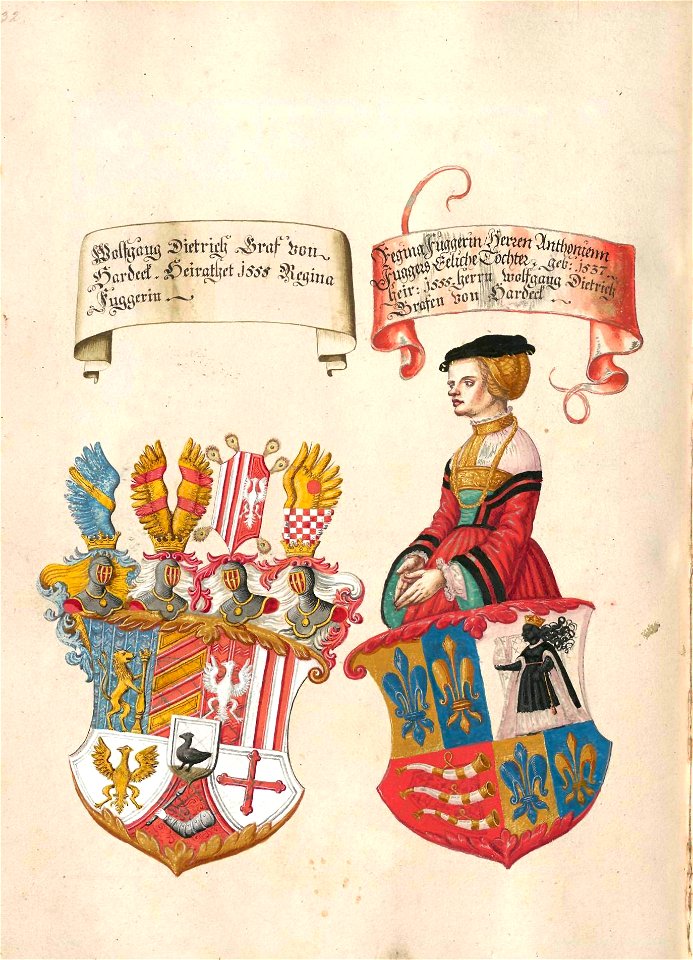 32
Wolfgang Dietrich Graf von
Hardeck. Heirathet 1555 Regina
Fuggerin.
Regina Fuggerin Herren Anthonienn
Fuggers Eeliche Tochter, geb: 1537.
heir: 1555. herrn wolfgang Dietrich
Grafen von Hardeck